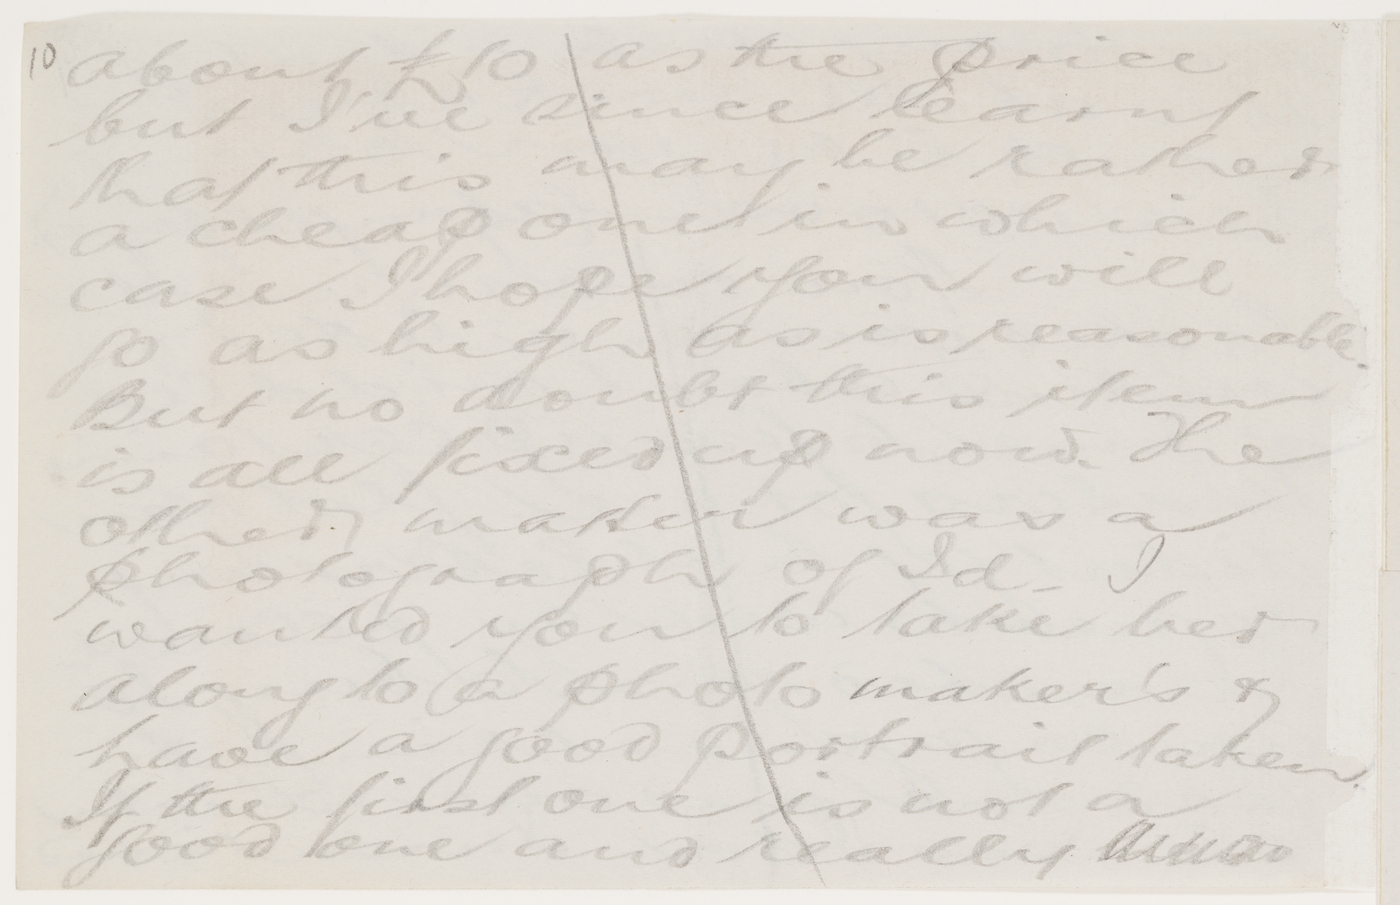 10 about £10 as the price
but I've since learnt
that this may be rather
a cheap one in which
case I hope you will
go as high as is reasonable.
But no doubt this item
is all fixed up now. The
other matter was a
photograph of Id - I
wanted you to take her
along to a photo maker's &
have a good portrait taken.
If the first one is not a
good one and really